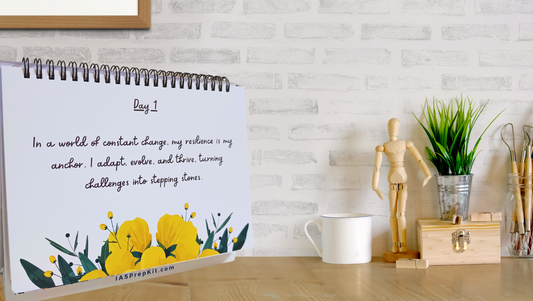 Day 1
In a world of constant change, my resilience is my
anchor. I adapt, evolve, and thrive, turning
challenges into stepping stones.
IASPrepKit.com